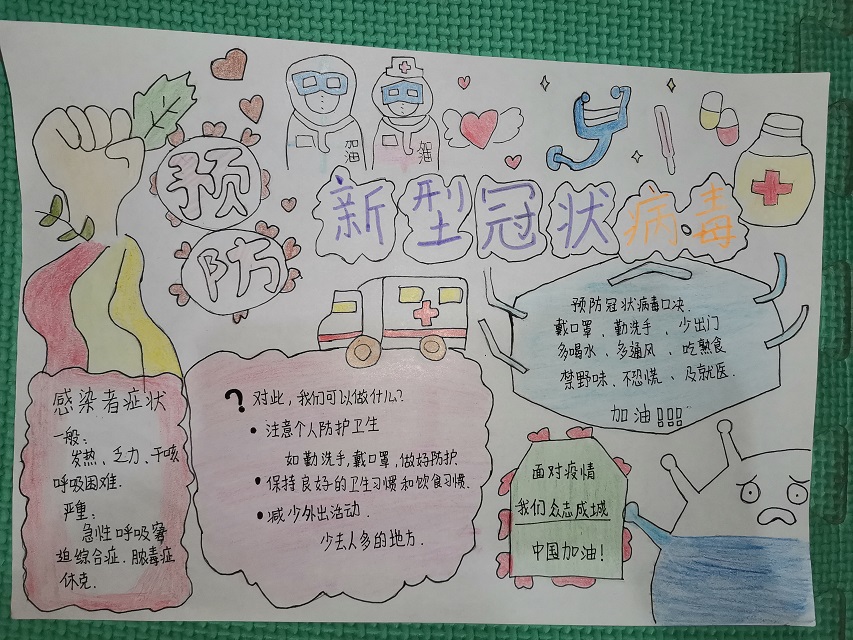 加油
加油
预防
新型冠状病毒
预防冠状病毒口决.
戴口罩、勤洗手、少出门
多喝水、多通风、吃熟食
禁野味、不恐慌、及就医.
加油!!!
感染者症状
一般:
发热、乏力、干咳
呼吸困难.
严重:
急性呼吸窘
迫综合症.脓毒症
休克.
?对此,我们可以做什么?
•注意个人防护卫生
如勤洗手,戴口罩,做好防护.
•保持良好的卫生习惯和饮食习惯.
•减少外出活动.
少去人多的地方.
面对疫情
我们众志成城
中国加油!